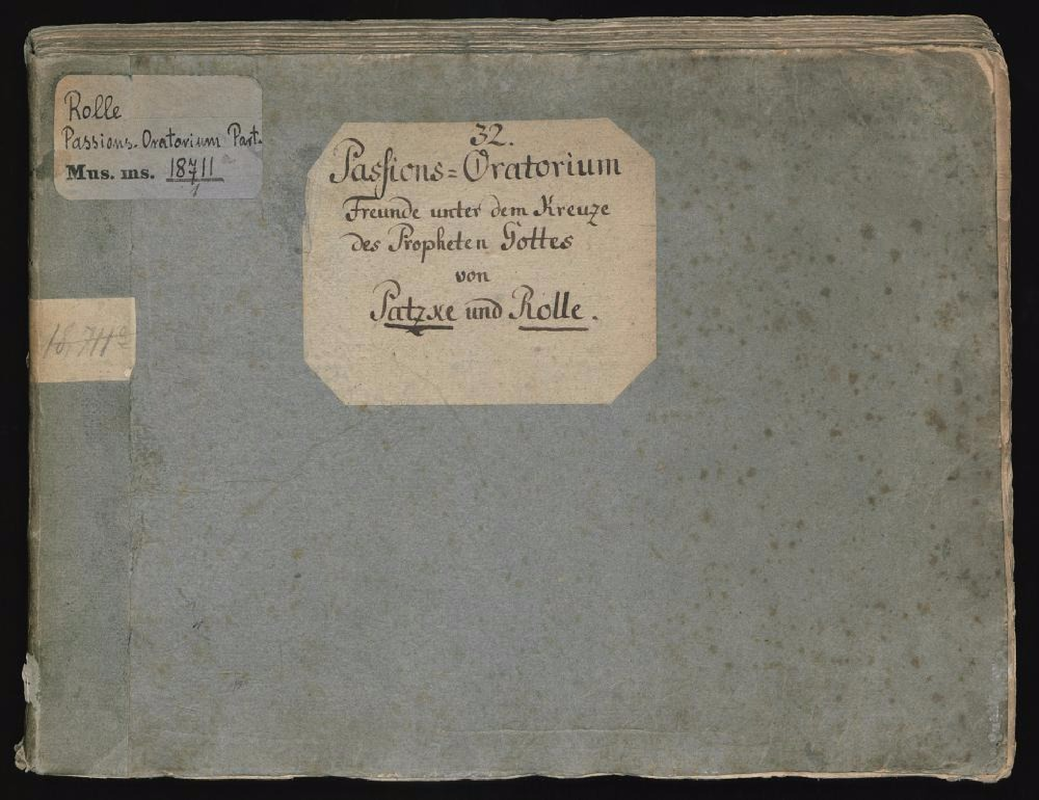 Rolle
Passions-Oratorium Part.
Mus. ms. 18711
1
32.
Paſsions=Oratorium
Freunde unter dem Kreuze
des Propheten Gottes
von
Patzke und Rolle.
18,711a